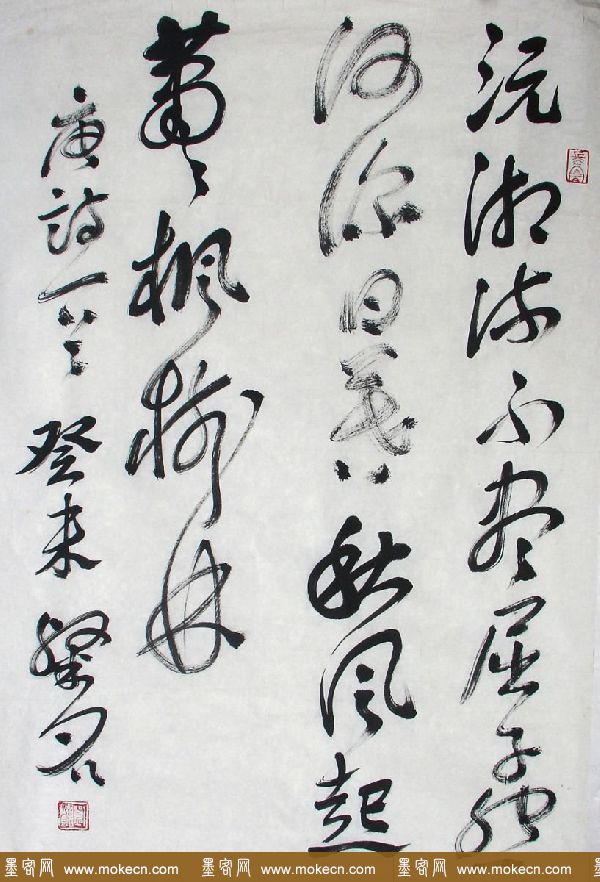 沅湘流不尽屈子怨
何深日暮秋风起
萧萧枫树林
唐诗一首 癸未
墨客网 www.mokecn.com 墨客网 www.mokecn.com 墨客网 www.mokecn.com